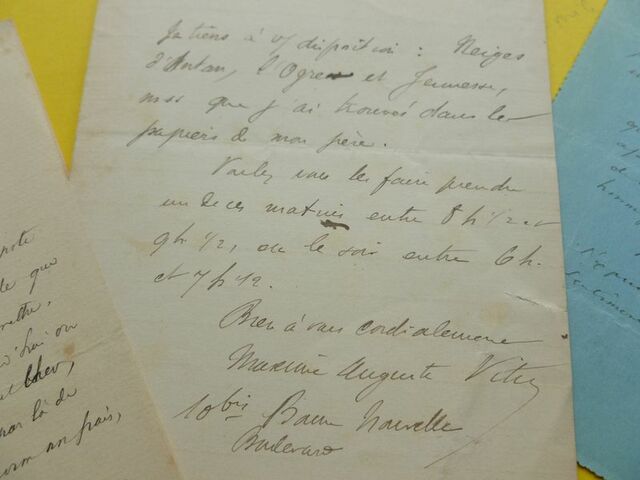 Je tiens à v/ disposition : Neiges
d'Antan, l'Ogre et Jeunesse,
mss que j'ai trouvés dans les
papiers de mon père.
Voulez vous les faire prendre
un de ces matins entre 8 h 1/2 et
9h 1/2, ou le soir entre 6h.
et 7 h 1/2.
Bien à vous cordialement
Maxime Auguste Vitu
10 bis Bonne Nouvelle
Boulevard
de que
et
par là de